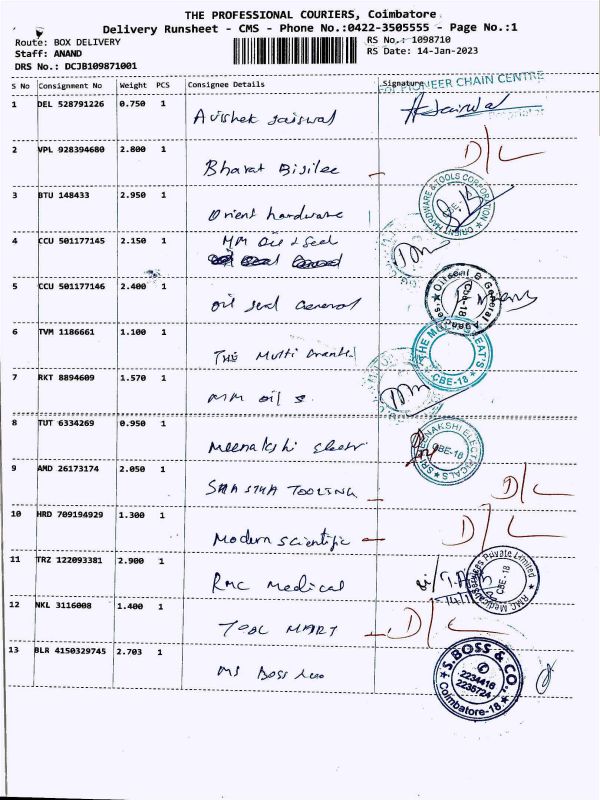 THE PROFESSIONAL COURIERS, Coimbatore
Delivery Runsheet - CMS - Phone No.:0422-3505555 - Page No.:1
Route: BOX DELIVERY
RS No.: 1098710
Staff: ANAND
RS Date: 14-Jan-2023
DRS No.: DCJB109871001
S No Consignment No Weight PCS Consignee Details Signature
For PIONEER CHAIN CENTRE
1 DEL 528791226 0.750 1 Avishek Jaiswal AJaiswal
Proprietor
2 VPL 928394680 2.800 1 Bharat Bijilee D/L
3 BTU 148433 2.950 1 Orient hardware
ORIENT HARDWARE & TOOLS CORPORATION CBE-18
4 CCU 501177145 2.150 1 MM Oil & Seal
5 CCU 501177146 2.400 1 Oil Seal General
Oilseal & General Agencies Cbe-18
6 TVM 1186661 1.100 1 THE Multi
CBE-18
7 RKT 8894609 1.570 1 MM Oil S.
8 TUT 6334269 0.950 1 Meenakshi Electri
SRI MEENAKSHI ELECTRICALS CBE-18
9 AMD 26173174 2.050 1 SHASTHA TOOLING D/L
10 HRD 709194929 1.300 1 Modern Scientific D/L
11 TRZ 122093381 2.900 1 RMC Medical
RMC Private Limited CBE-18
12 NKL 3116008 1.400 1 TOOL MART D/L
13 BLR 4150329745 2.703 1 MS Boss &co
S.BOSS & CO 2234416 2236724 Coimbatore-18